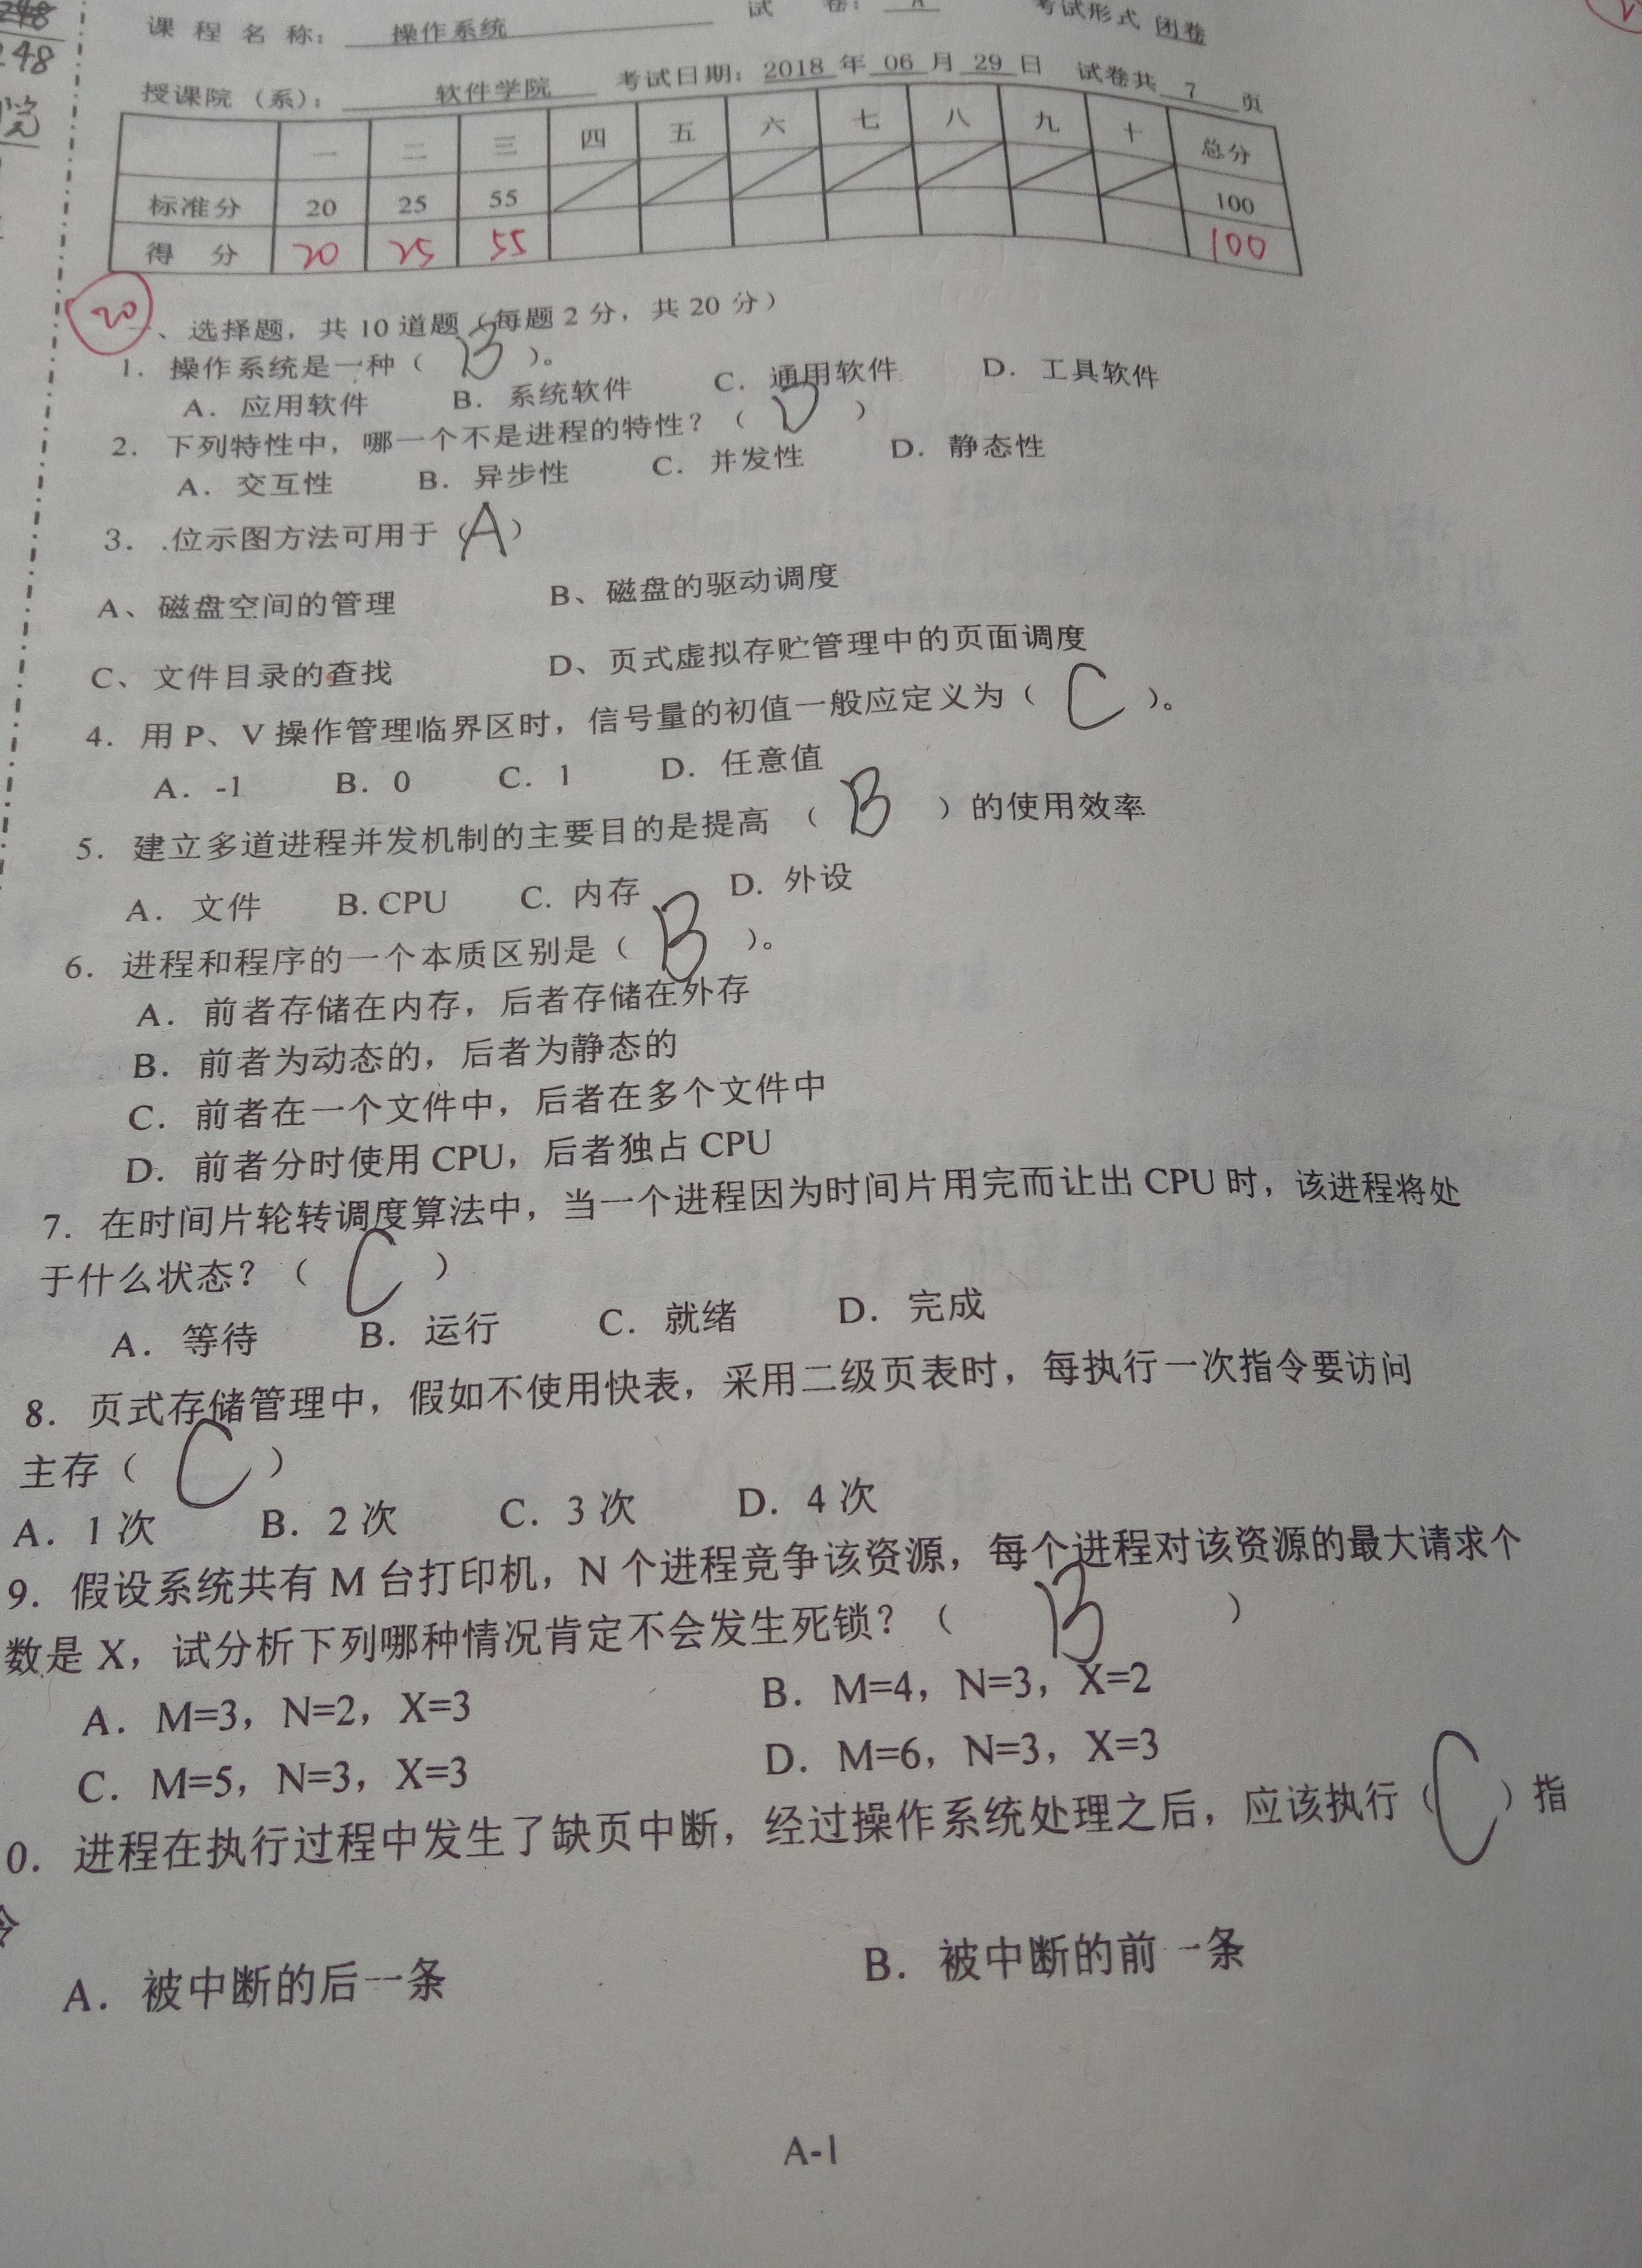 248
248
院
课 程 名 称： 操作系统 试 卷： A 考试形式 闭卷
授课院（系）： 软件学院 考试日期：2018 年 06 月 29 日 试卷共 7 页
一 二 三 四 五 六 七 八 九 十 总分
标准分 20 25 55 100
得 分 20 25 55 100
20
一、选择题，共 10 道题（每题 2 分，共 20 分）
1. 操作系统是一种（ B ）。
A. 应用软件 B. 系统软件 C. 通用软件 D. 工具软件
2. 下列特性中，哪一个不是进程的特性？（ D ）
A. 交互性 B. 异步性 C. 并发性 D. 静态性
3. .位示图方法可用于（A）
A、磁盘空间的管理 B、磁盘的驱动调度
C、文件目录的查找 D、页式虚拟存贮管理中的页面调度
4. 用 P、V 操作管理临界区时，信号量的初值一般应定义为（ C ）。
A. -1 B. 0 C. 1 D. 任意值
5. 建立多道进程并发机制的主要目的是提高 （ B ）的使用效率
A. 文件 B. CPU C. 内存 D. 外设
6. 进程和程序的一个本质区别是（ B ）。
A. 前者存储在内存，后者存储在外存
B. 前者为动态的，后者为静态的
C. 前者在一个文件中，后者在多个文件中
D. 前者分时使用 CPU，后者独占 CPU
7. 在时间片轮转调度算法中，当一个进程因为时间片用完而让出 CPU 时，该进程将处
于什么状态？（ C ）
A. 等待 B. 运行 C. 就绪 D. 完成
8. 页式存储管理中，假如不使用快表，采用二级页表时，每执行一次指令要访问
主存（ C ）
A. 1 次 B. 2 次 C. 3 次 D. 4 次
9. 假设系统共有 M 台打印机，N 个进程竞争该资源，每个进程对该资源的最大请求个
数是 X，试分析下列哪种情况肯定不会发生死锁？（ B ）
A. M=3，N=2，X=3 B. M=4，N=3，X=2
C. M=5，N=3，X=3 D. M=6，N=3，X=3
0. 进程在执行过程中发生了缺页中断，经过操作系统处理之后，应该执行（ C ）指
令
A. 被中断的后一条 B. 被中断的前一条
A-1